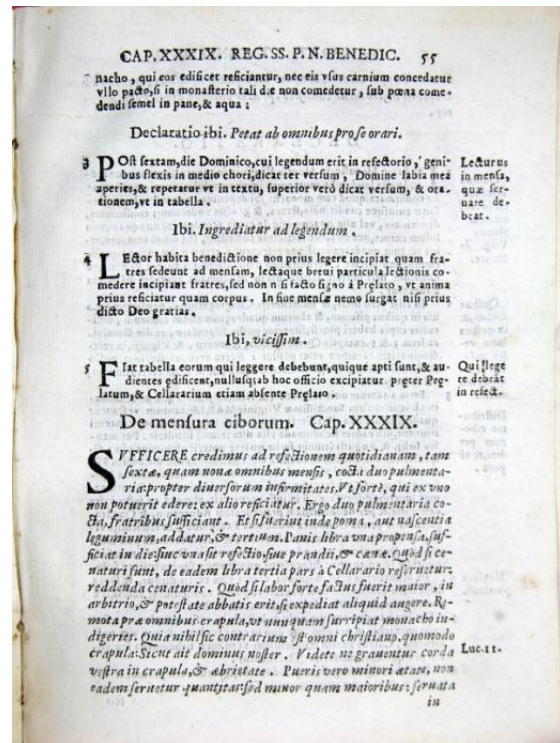 CAP. XXXIX. REG. SS. P. N. BENEDIC. 55
nacho, qui eos edificet reficiantur, nec eis vsus carnium concedatur
vllo pacto, si in monasterio tali die non comedetur, sub pœna come-
dendi semel in pane, & aqua:
Declaratio ibi. Petat ab omnibus pro se orari.
3 POst sextam, die Dominico, cui legendum erit in refectorio, geni-
bus flexis in medio chori, dicat ter versum, Domine labia mea
aperies, & repetatur vt in textu, superior verò dicat versum, & ora-
tionem, vt in tabella.
Lecturus
in mensa,
quæ ser-
uare de-
beat.
Ibi. Ingrediatur ad legendum.
4 LEctor habita benedictione non prius legere incipiat quam fra-
tres sedeunt ad mensam, lectaque breui particula lectionis co-
medere incipiant fratres, sed non nisi facto signo à Pręlato, vt anima
prius reficiatur quam corpus. In fine mensæ nemo surgat nisi prius
dicto Deo gratias.
Ibi, vicissim.
5 FIat tabella eorum qui leggere debebunt, quique apti sunt, & au-
dientes edificent, nullusq; ab hoc officio excipiatur pręter Prę-
latum, & Cellararium etiam absente Pręlato.
Qui lege
re debeāt
in refect.
De mensura ciborum. Cap. XXXIX.
SVFFICERE credimus ad refectionem quotidianam, tam
sextæ, quam nonæ omnibus mensis, cocta duo pulmenta-
ria: propter diuersorum infirmitates. Vt fortè, qui ex vno
non potuerit edere: ex alio reficiatur. Ergo duo pulmentaria co-
cta, fratribus sufficiant. Et si fuerint inde poma, aut nascentia
leguminum, addatur, & tertium. Panis libra vna propensa, suf-
ficiat in die: siue vna sit refectio, siue prandii, & cænæ. Quòd si ce-
naturi sunt, de eadem libra tertia pars à Cellarario reseruetur:
reddenda cenaturis. Quòd si labor forte factus fuerit maior, in
arbitrio, & potestate abbatis erit, si expediat aliquid augere. Re-
mota præ omnibus crapula, vt nunquam surripiat monacho in-
digeries. Quia nihil sic contrarium est omni christiano, quomodo
crapula: Sicut ait dominus noster. Videte ne grauentur corda
Luc. 21.
vestra in crapula, & æbrietate. Pueris vero minori ætate, non
eadem seruetur quantitas: sed minor quam maioribus: seruata
in